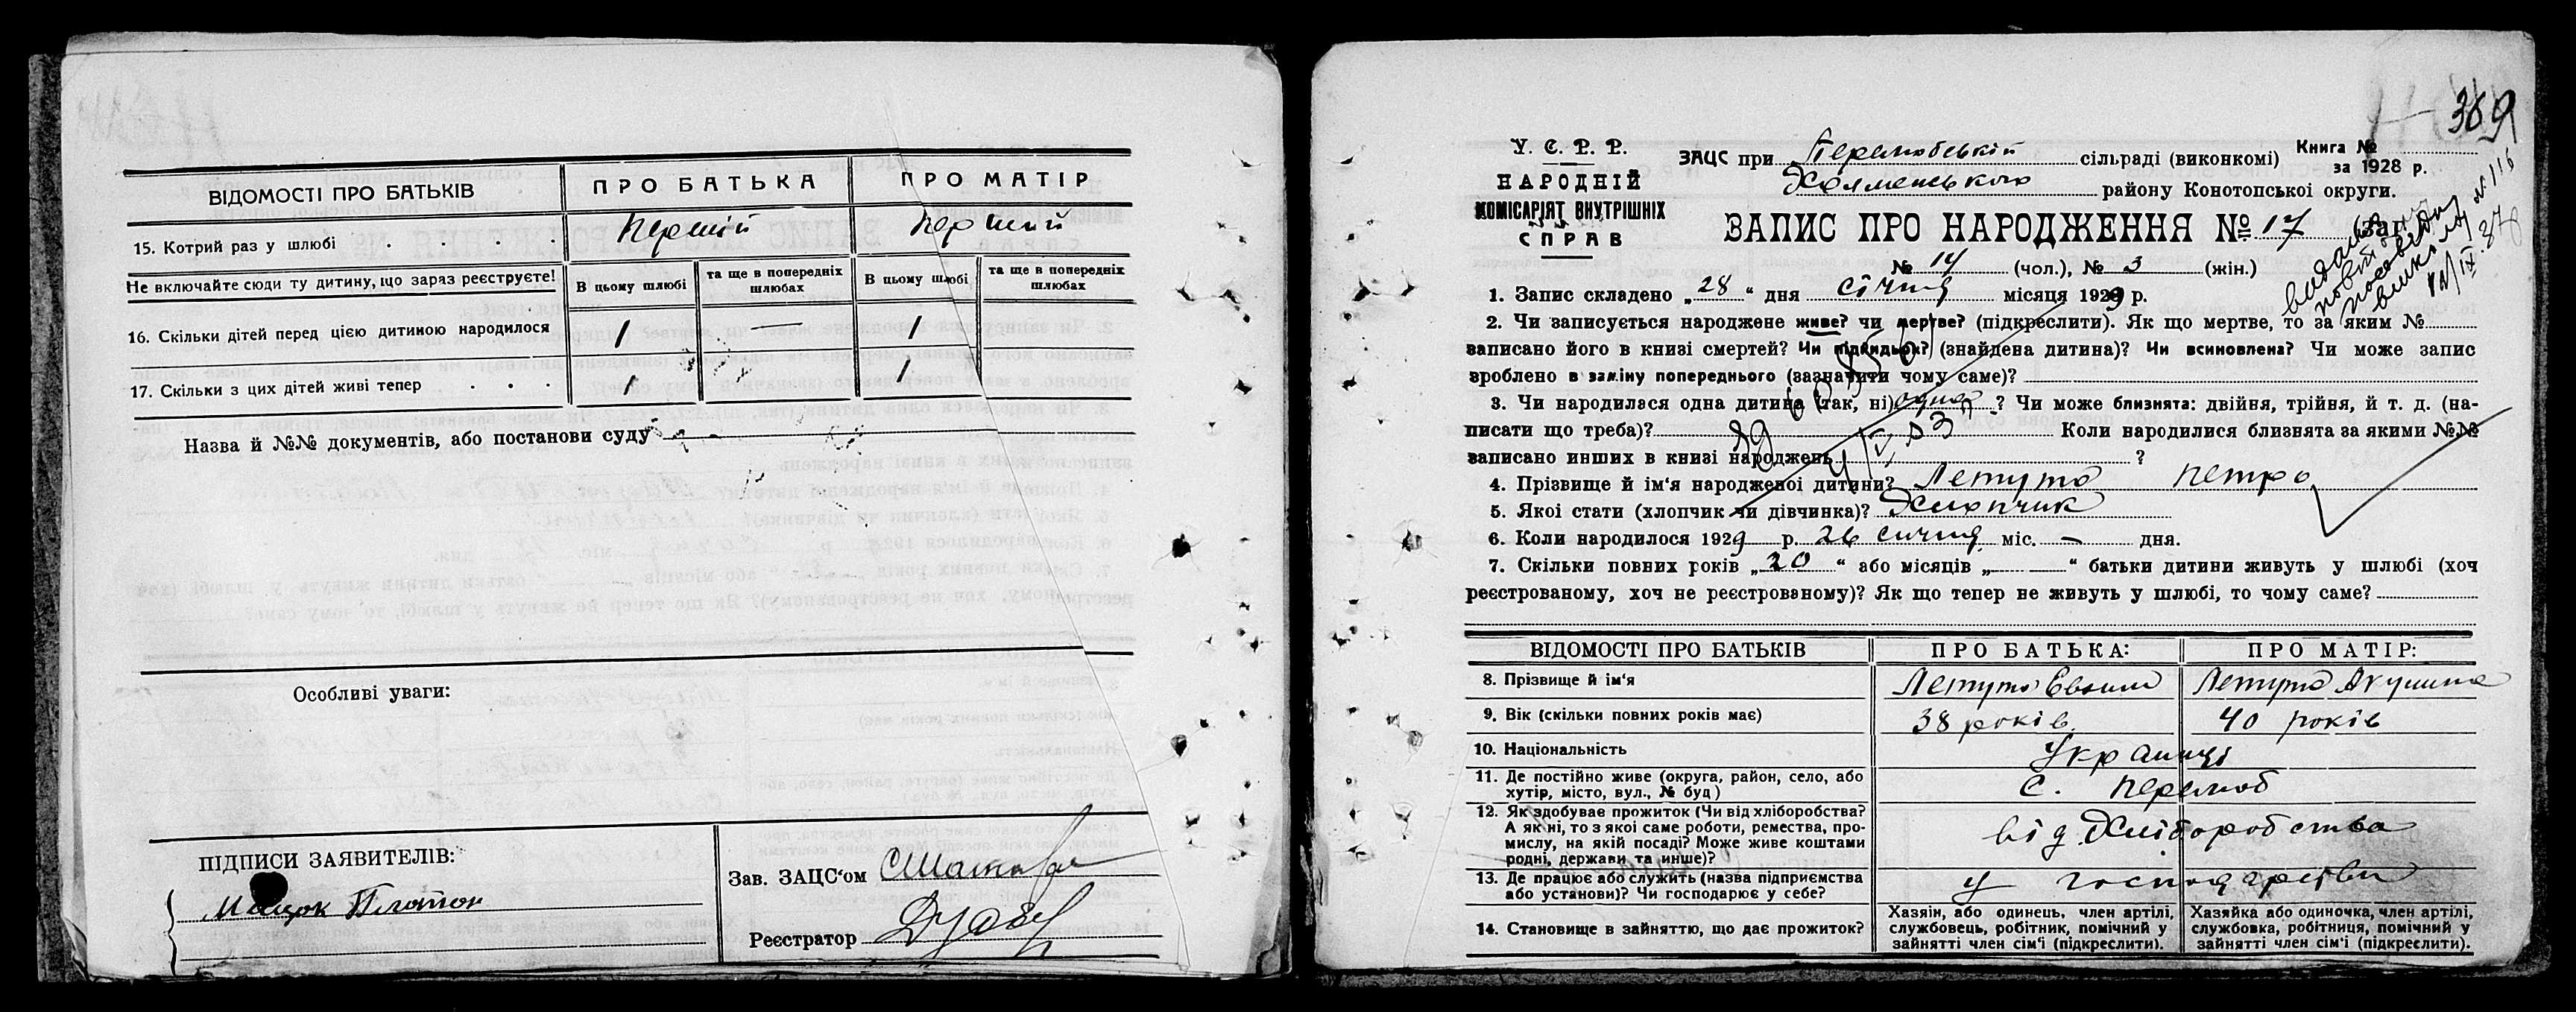 ВІДОМОСТІ ПРО БАТЬКІВ
ПРО БАТЬКА
ПРО МАТІР
15. Котрий раз у шлюбі . . . .
перший
перший
Не включайте сюди ту дитину, що зараз реєструєте!
В цьому шлюбі
та ще в попередніх шлюбах
В цьому шлюбі
та ще в попередніх шлюбах
16. Скільки дітей перед цією дитиною народилося
1
—
1
17. Скільки з цих дітей живі тепер . . .
1
1
Назва й №№ документів, або постанови суду
Особливі уваги:
ПІДПИСИ ЗАЯВИТЕЛІВ:
Платон
Зав. ЗАЦС'ом
Реєстратор
369
У. С. Р. Р.
НАРОДНІЙ
КОМІСАРІЯТ ВНУТРІШНІХ
СПРАВ
ЗАЦС при сільраді (виконкомі)
Книга №
за 1928 р.
району Конотопської округи.
ЗАПИС ПРО НАРОДЖЕННЯ № 17 (заг.)
№ 14 (чол.), № 3 (жін.)
1. Запис складено „28“ дня січня місяця 1929 р.
2. Чи записується народжене живе? чи мертве? (підкреслити). Як що мертве, то за яким №
записано його в книзі смертей? Чи підкидьок? (знайдена дитина)? Чи всиновлена? Чи може запис
зроблено в заміну попереднього (зазначити чому саме)?
3. Чи народилася одна дитина (так, ні) одна ? Чи може близнята: двійня, трійня, й т. д. (на-
писати що треба)? Коли народилися близнята за якими №№
записано инших в книзі народжень ?
4. Прізвище й ім'я народженої дитини? Лемута Петро
5. Якої стати (хлопчик чи дівчинка)? Хлопчик
6. Коли народилося 1929 р. 26 сичня міс. — дня.
7. Скільки повних років „20“ або місяців „—“ батьки дитини живуть у шлюбі (хоч
реєстрованому, хоч не реєстрованому)? Як що тепер не живуть у шлюбі, то чому саме?
ВІДОМОСТІ ПРО БАТЬКІВ
ПРО БАТЬКА:
ПРО МАТІР:
8. Прізвище й ім'я
Лемута
Лемута
9. Вік (скільки повних років має)
38 років
40 років
10. Національність
Украинці
11. Де постійно живе (округа, район, село, або
хутір, місто, вул., № буд)
с. Перелюб
12. Як здобуває прожиток (Чи від хліборобства?
А як ні, то з якої саме роботи, ремества, про-
мислу, на якій посаді? Може живе коштами
родні, держави та инше)?
від Хліборобства
13. Де працює або служить (назва підприємства
або установи)? Чи господарює у себе?
у господарстви
14. Становище в зайняттю, що дає прожиток?
Хазяїн, або одинець, член артілі,
службовець, робітник, помічний у
зайнятті член сім'ї (підкреслити).
Хазяйка або одиночка, член артілі,
службовка, робітниця, помічний у
зайнятті член сім'ї (підкреслити).